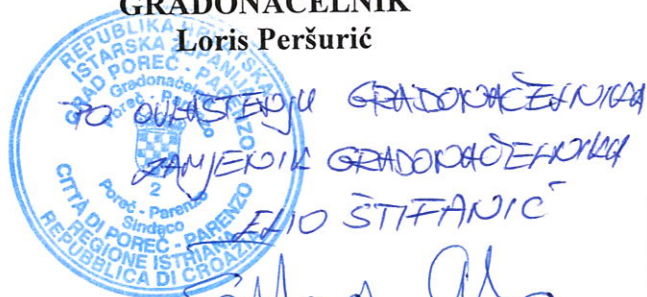 GRADONAČELNIK
Loris Peršurić
REPUBLIKA HRVATSKA
ISTARSKA ŽUPANIJA
GRAD POREČ - PARENZO
Gradonačelnik
Poreč - Parenzo
2
Poreč - Parenzo
Sindaco
CITTÀ DI POREČ - PARENZO
REGIONE ISTRIANA
REPUBBLICA DI CROAZIA
PO OVLAŠTENJU GRADONAČELNIKA
ZAMJENIK GRADONAČELNIKA
ELIO ŠTIFANIĆ